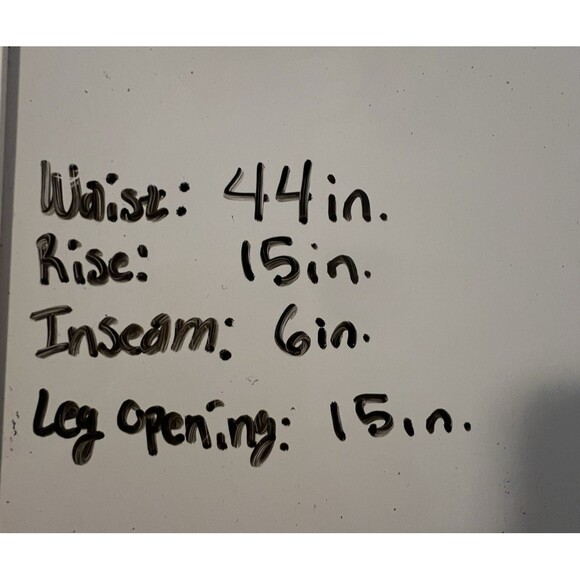 Waist: 44in.
Rise: 15in.
Inseam: 6in.
Leg Opening: 15in.